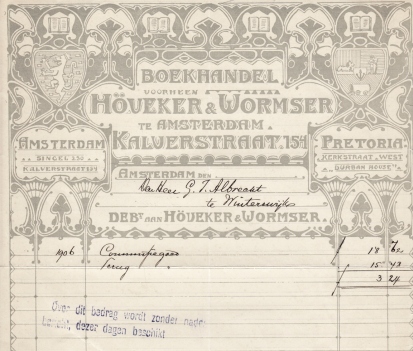 BOEKHANDEL
VOORHEEN
HÖVEKER & WORMSER
TE AMSTERDAM.
KALVERSTRAAT. 154
AMSTERDAM
SINGEL
KALVERSTRAAT 154
PRETORIA
KERKSTRAAT WEST
AMSTERDAM DEN
Den Heer G. J. Albrecht
te Winterswijk
DEBT AAN HÖVEKER & WORMSER.
1906
18
Terug
15 43
3 24
Over dit bedrag wordt zonder nader
bericht, dezer dagen beschikt